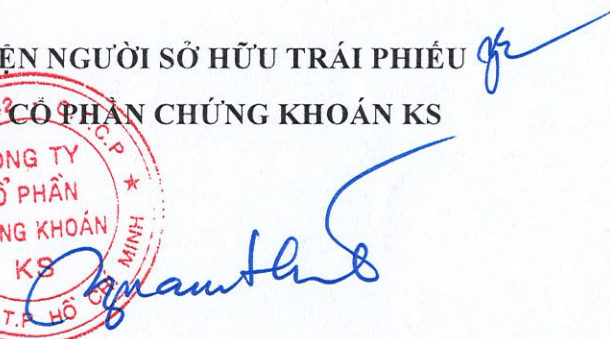 ỆN NGƯỜI SỞ HỮU TRÁI PHIẾU
CỔ PHẦN CHỨNG KHOÁN KS
C.T.C.P
ÔNG TY
Ổ PHẦN
NG KHOÁN
KS
T.P HỒ CHÍ MINH